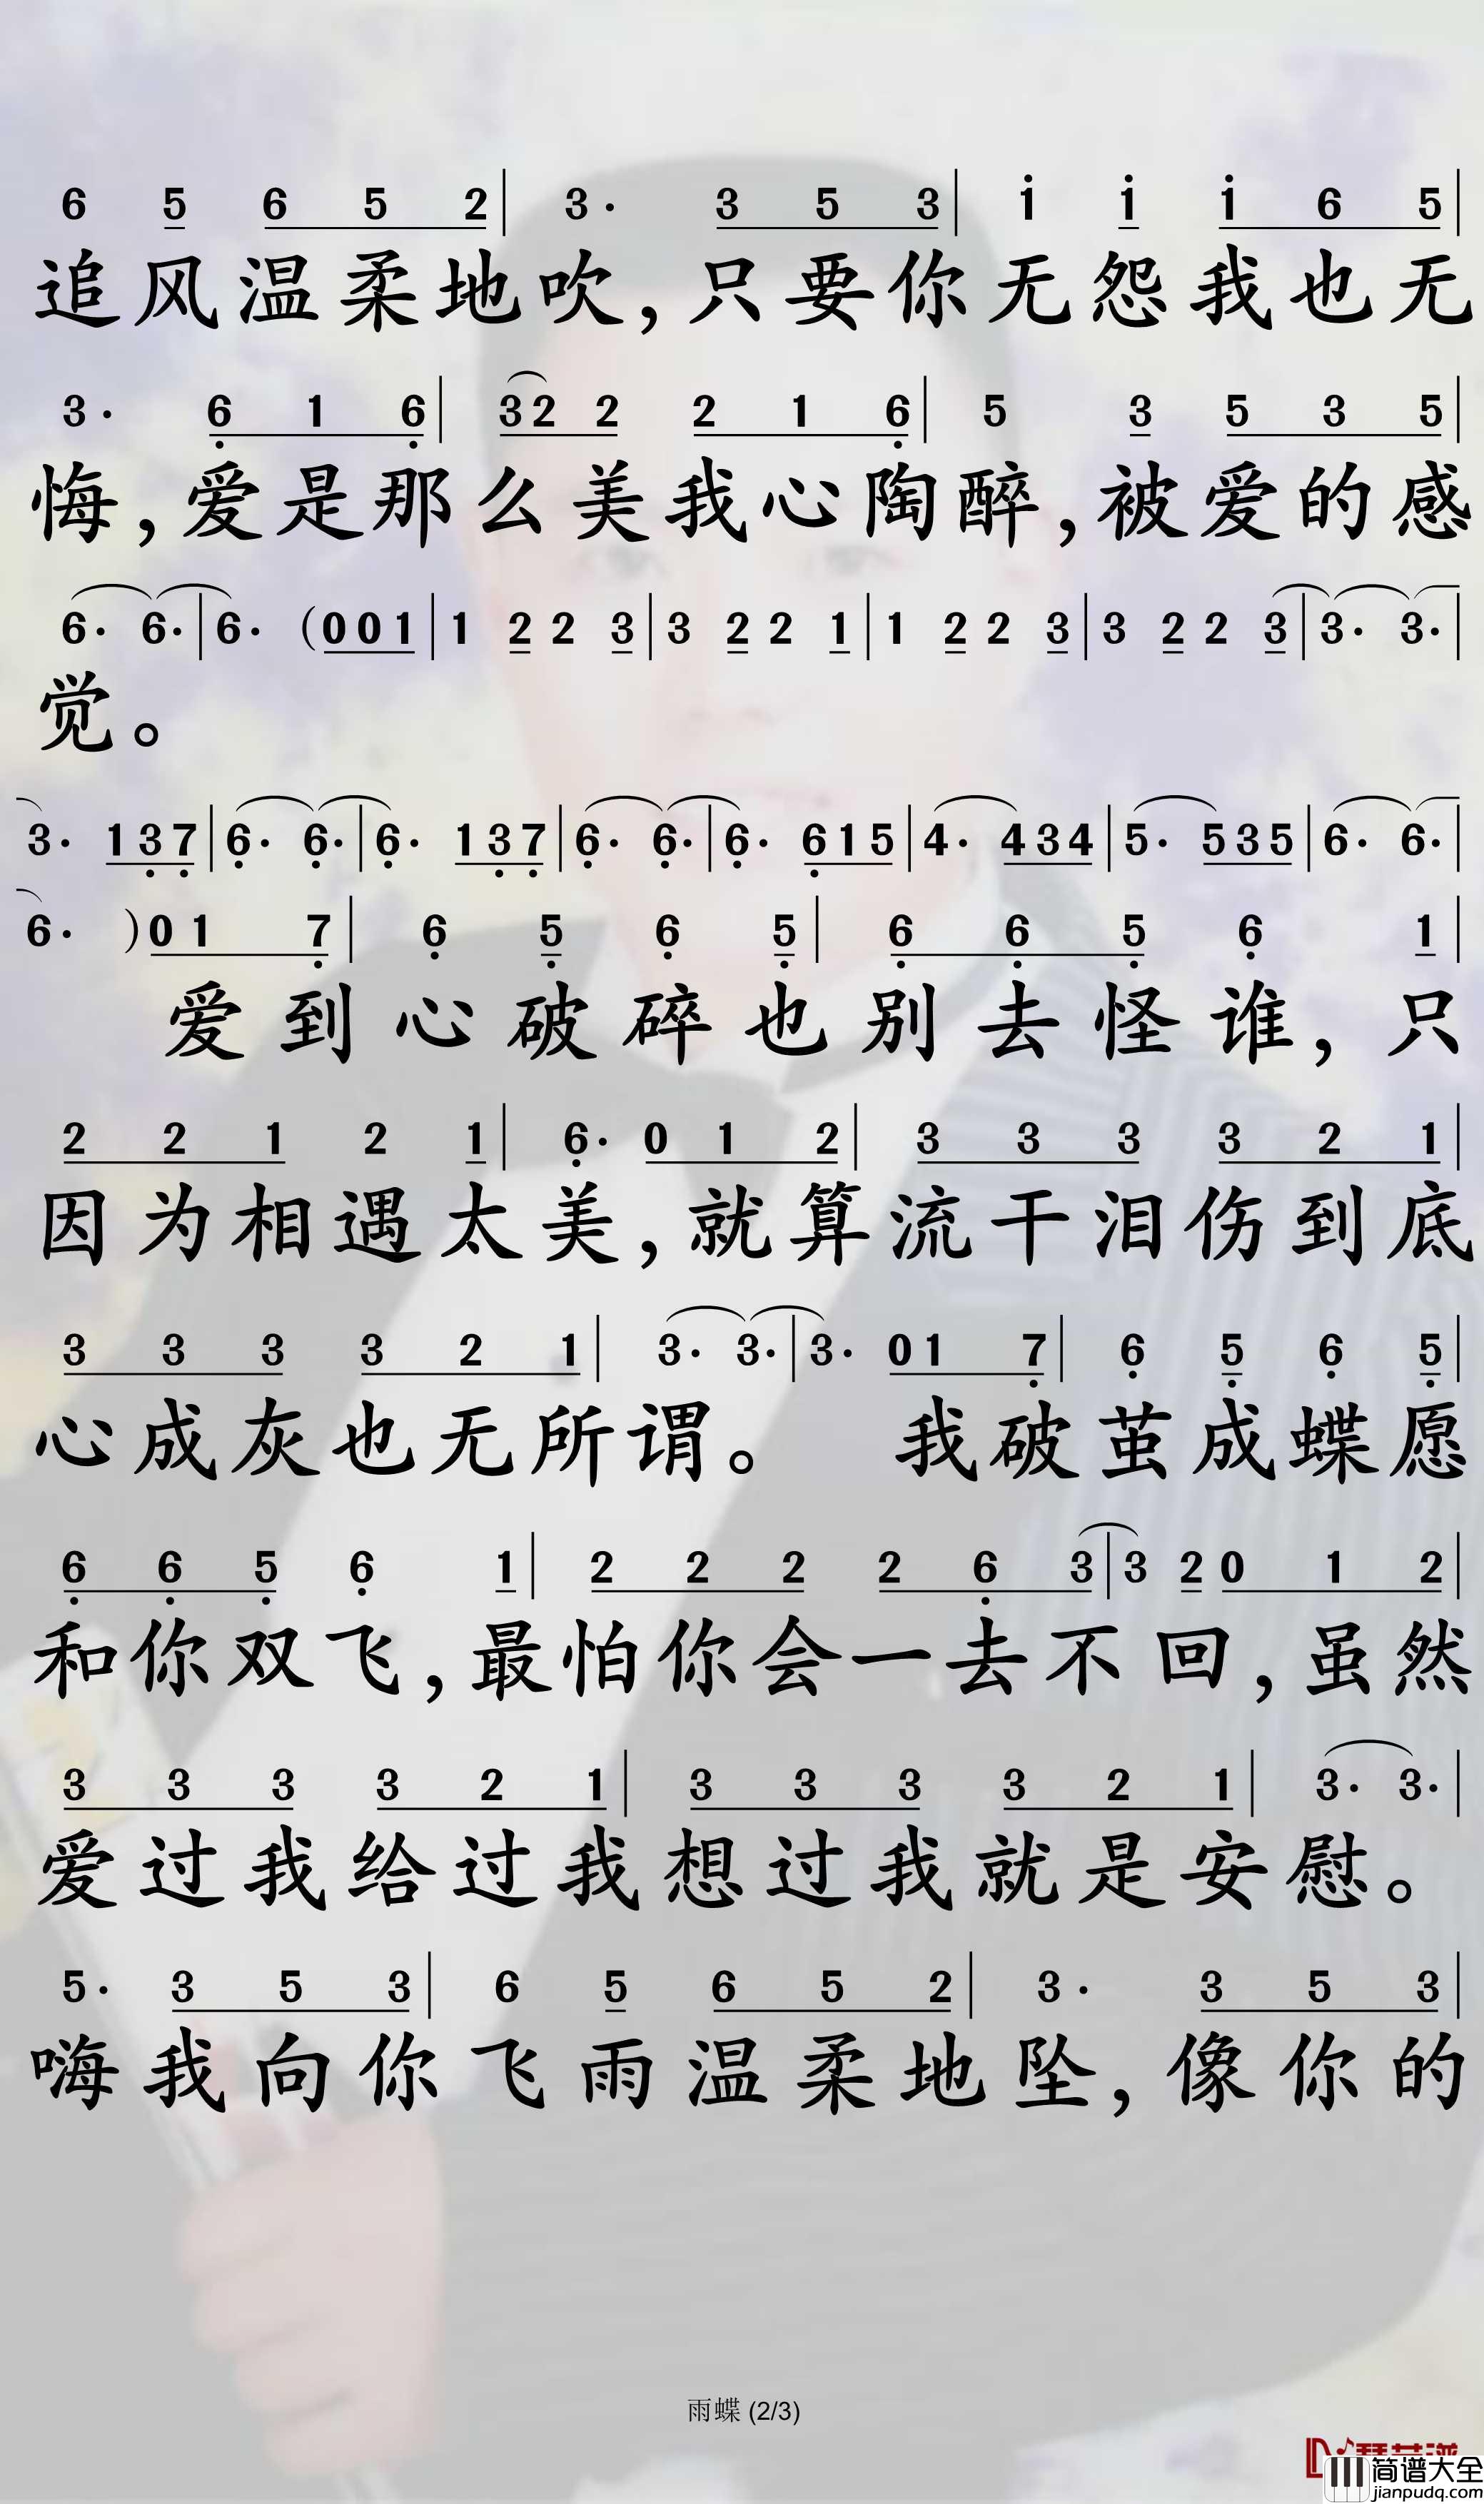 6 5 6 5 2 | 3· 3 5 3 | i i i 6 5 |
追风温柔地吹，只要你无怨我也无
3· 6̣ 1 6̣ | 3 2 2 2 1 6̣ | 5 3 5 3 5 |
悔，爱是那么美我心陶醉，被爱的感
6· 6· | 6· (0 0 1 | 1 2 2 3 | 3 2 2 1 | 1 2 2 3 | 3 2 2 3 | 3· 3· |
觉。
3· 1 3̣ 7̣ | 6̣· 6̣· | 6̣· 1 3̣ 7̣ | 6̣· 6̣· | 6̣· 6̣ 1 5 | 4· 4 3 4 | 5· 5 3 5 | 6· 6· |
6· ) 0 1 7̣ | 6̣ 5̣ 6̣ 5̣ | 6̣ 6̣ 5̣ 6̣ 1 |
爱到心破碎也别去怪谁，只
2 2 1 2 1 | 6̣· 0 1 2 | 3 3 3 3 2 1 |
因为相遇太美，就算流干泪伤到底
3 3 3 3 2 1 | 3· 3· | 3· 0 1 7̣ | 6̣ 5̣ 6̣ 5̣ |
心成灰也无所谓。 我破茧成蝶愿
6̣ 6̣ 5̣ 6̣ 1 | 2 2 2 2 6̣ 3 | 3 2 0 1 2 |
和你双飞，最怕你会一去不回，虽然
3 3 3 3 2 1 | 3 3 3 3 2 1 | 3· 3· |
爱过我给过我想过我就是安慰。
5· 3 5 3 | 6 5 6 5 2 | 3· 3 5 3 |
嗨我向你飞雨温柔地坠，像你的
雨蝶 (2/3)
简谱大全
jianpudq.com